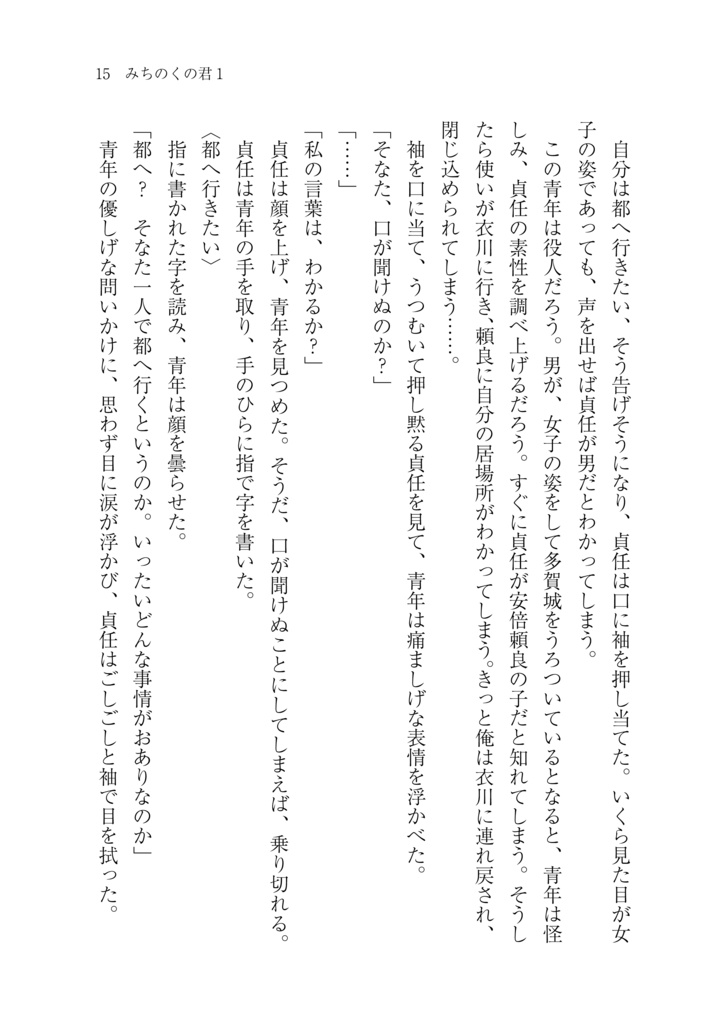 15　みちのくの君1
　自分は都へ行きたい、そう告げそうになり、貞任は口に袖を押し当てた。いくら見た目が女
子の姿であっても、声を出せば貞任が男だとわかってしまう。
　この青年は役人だろう。男が、女子の姿をして多賀城をうろついているとなると、青年は怪
しみ、貞任の素性を調べ上げるだろう。すぐに貞任が安倍頼良の子だと知れてしまう。そうし
たら使いが衣川に行き、頼良に自分の居場所がわかってしまう。きっと俺は衣川に連れ戻され、
閉じ込められてしまう……。
　袖を口に当て、うつむいて押し黙る貞任を見て、青年は痛ましげな表情を浮かべた。
「そなた、口が聞けぬのか？」
「……」
「私の言葉は、わかるか？」
　貞任は顔を上げ、青年を見つめた。そうだ、口が聞けぬことにしてしまえば、乗り切れる。
　貞任は青年の手を取り、手のひらに指で字を書いた。
〈都へ行きたい〉
　指に書かれた字を読み、青年は顔を曇らせた。
「都へ？　そなた一人で都へ行くというのか。いったいどんな事情がおありなのか」
　青年の優しげな問いかけに、思わず目に涙が浮かび、貞任はごしごしと袖で目を拭った。